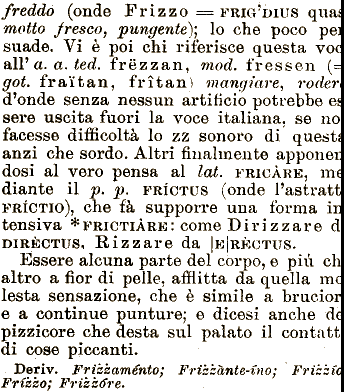 freddo (onde Frizzo = FRIG'DIUS quas
motto fresco, pungente); lo che poco per
suade. Vi è poi chi riferisce questa voc
all' a. a. ted. frëzzan, mod. fressen (=
got. fraïtan, frîtan) mangiare, roder
d'onde senza nessun artificio potrebbe es
sere uscita fuori la voce italiana, se no
facesse difficoltà lo zz sonoro di questa
anzi che sordo. Altri finalmente apponen
dosi al vero pensa al lat. FRICÀRE, me
diante il p. p. FRÍCTUS (onde l'astratt
FRÍCTIO), che fà supporre una forma in
tensiva *FRICTIÀRE: come Dirizzare d
DIRÈCTUS, Rizzare da |E|RÈCTUS.
Essere alcuna parte del corpo, e più ch
altro a fior di pelle, afflitta da quella mo
lesta sensazione, che è simile a brucior
e a continue punture; e dicesi anche de
pizzicore che desta sul palato il contatt
di cose piccanti.
Deriv. Frizzaménto; Frizzànte-íno; Frizzío
Frízzo; Frizzóre.